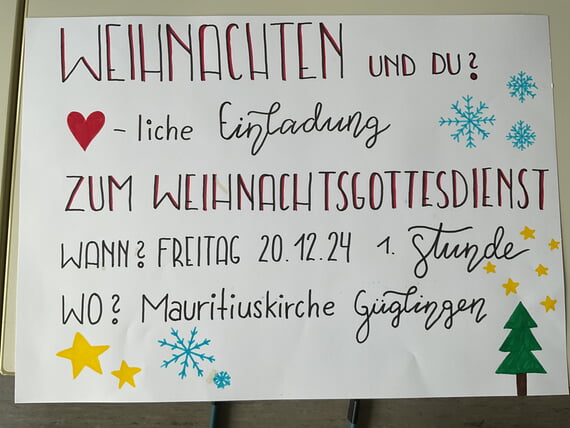 WEIHNACHTEN UND DU?
-liche Einladung
ZUM WEIHNACHTSGOTTESDIENST
WANN? FREITAG 20.12.24 1. Stunde
WO? Mauritiuskirche Güglingen